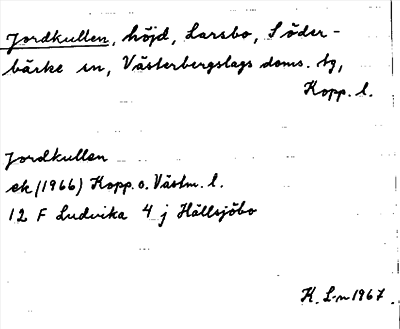 Jordkullen, höjd, Larsbo, Söder-
bärke sn, Västerbergslags doms. tg,
Kopp. l.
Jordkullen
ek (1966) Kopp. o. Västm. l.
12 F Ludvika 4 j Hällsjöbo
K. L-n 1967.